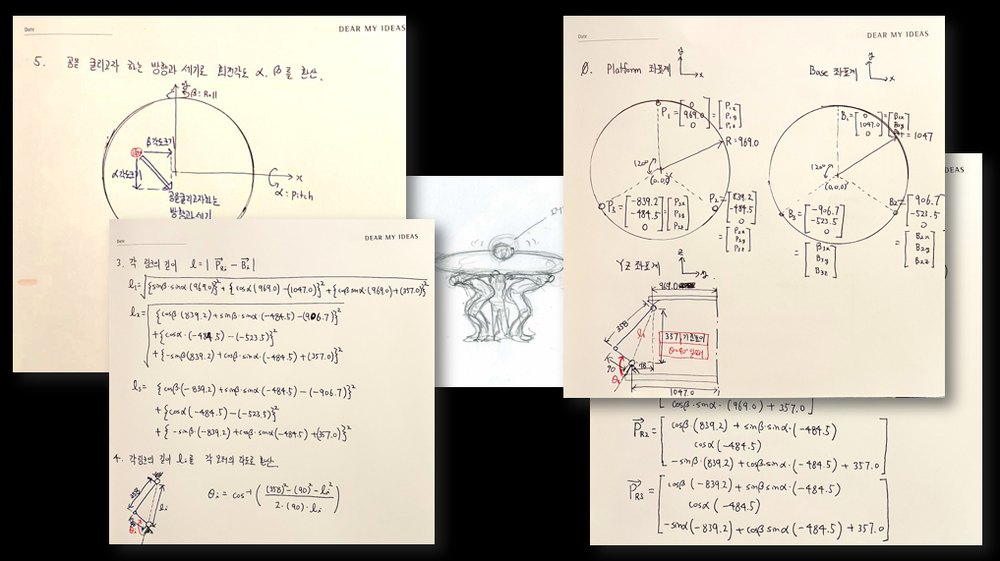 Date
DEAR MY IDEAS
5. 공을 굴리고자 하는 방향과 세기로 회전각도 α, β를 환산.
y
β: Roll
β각도크기
α각도크기
x
α: Pitch
공을굴리고자하는
방향과 세기
Date
DEAR MY IDEAS
3. 각 링크의 길이 l = | P⃗Ri − B⃗i |
l₁ = √{sinβ·sinα(969.0)}² + {cosα(969.0) − (1047.0)}² + {cosβsinα·(969.0) + (357.0)}²
l₂ = √{cosβ(839.2) + sinβ·sinα(−484.5) − (906.7)}²
+ {cosα·(−484.5) − (−523.5)}²
+ {−sinβ(839.2) + cosβ·sinα(−484.5) + (357.0)}²
l₃ = {cosβ(−839.2) + sinβ·sinα(−484.5) − (−906.7)}²
+ {cosα(−484.5) − (−523.5)}²
+ {−sinβ·(−839.2) + cosβ·sinα(−484.5) + (357.0)}²
4. 각 링크의 길이 li를 각 모터의 각도로 환산.
358
li
90
θi
θi = cos⁻¹( (358)² − (90)² − li² / 2·(90)·li )
Date
DEAR MY IDEAS
0. Platform 좌표계
y
x
Base 좌표계
y
x
P₁ = [0 969.0 0] = [P1x P1y P1z]
R = 969.0
120°
(0,0,0)
P₃ = [−839.2 −484.5 0] = [P3x P3y P3z]
P₂ = [839.2 −484.5 0]
= [P2x P2y P2z]
B₁ = [0 1047.0 0] = [B1x B1y B1z]
R = 1047
120°
(0,0,0)
B₃ = [−906.7 −523.5 0]
= [B3x B3y B3z]
B₂ = [906.7 −523.5 0]
= [B2x B2y B2z]
YZ 좌표계
z
y
969.0
358
l₁
357 기본높이
90
θ₁
48
1047.0
DEAS
cosβ·sinα·(969.0) + 357.0
P⃗R2 = [cosβ·(839.2) + sinβ·sinα·(−484.5)
cosα(−484.5)
−sinβ·(839.2) + cosβ·sinα·(−484.5) + 357.0]
P⃗R3 = [cosβ(−839.2) + sinβ·sinα·(−484.5)
cosα(−484.5)
−sinα(−839.2) + cosβ sinα(−484.5) + 357.0]